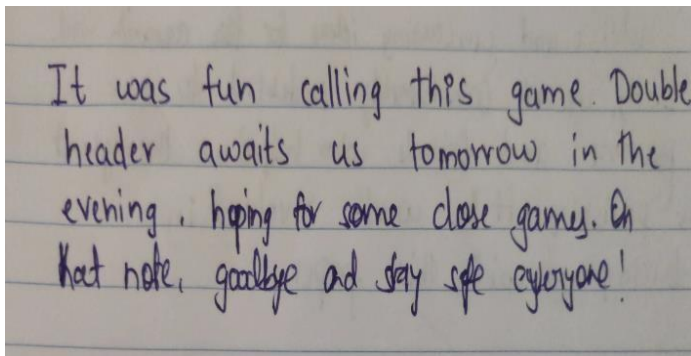 It was fun calling this game. Double
header awaits us tomorrow in the
evening, hoping for some close games. On
that note, goodbye and stay safe everyone!